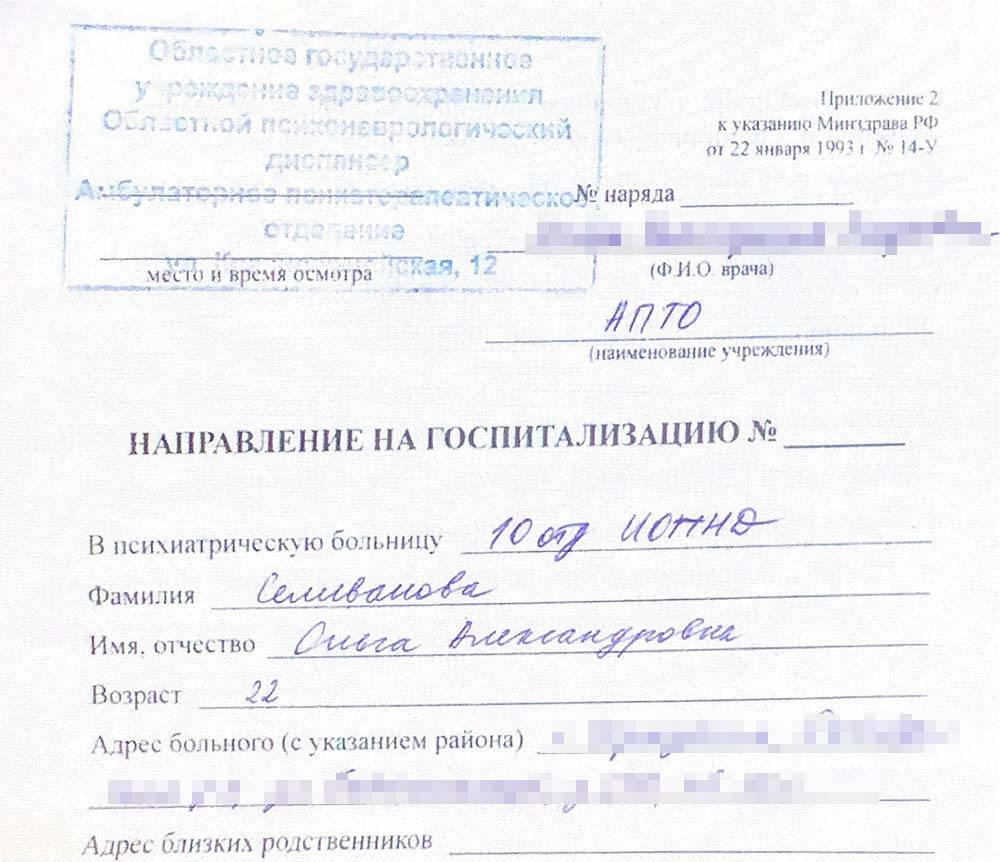 Областное государственное
учреждение здравоохранения
Областной психоневрологический
диспансер
Амбулаторное психотерапевтическое
отделение
ул. 12
Приложение 2
к указанию Минздрава РФ
от 22 января 1993 г № 14-У
№ наряда
место и время осмотра
(Ф.И.О. врача)
АПТО
(наименование учреждения)
НАПРАВЛЕНИЕ НА ГОСПИТАЛИЗАЦИЮ №
В психиатрическую больницу 10 отд ИОПНД
Фамилия Селиванова
Имя, отчество Ольга Александровна
Возраст 22
Адрес больного (с указанием района)
Адрес близких родственников